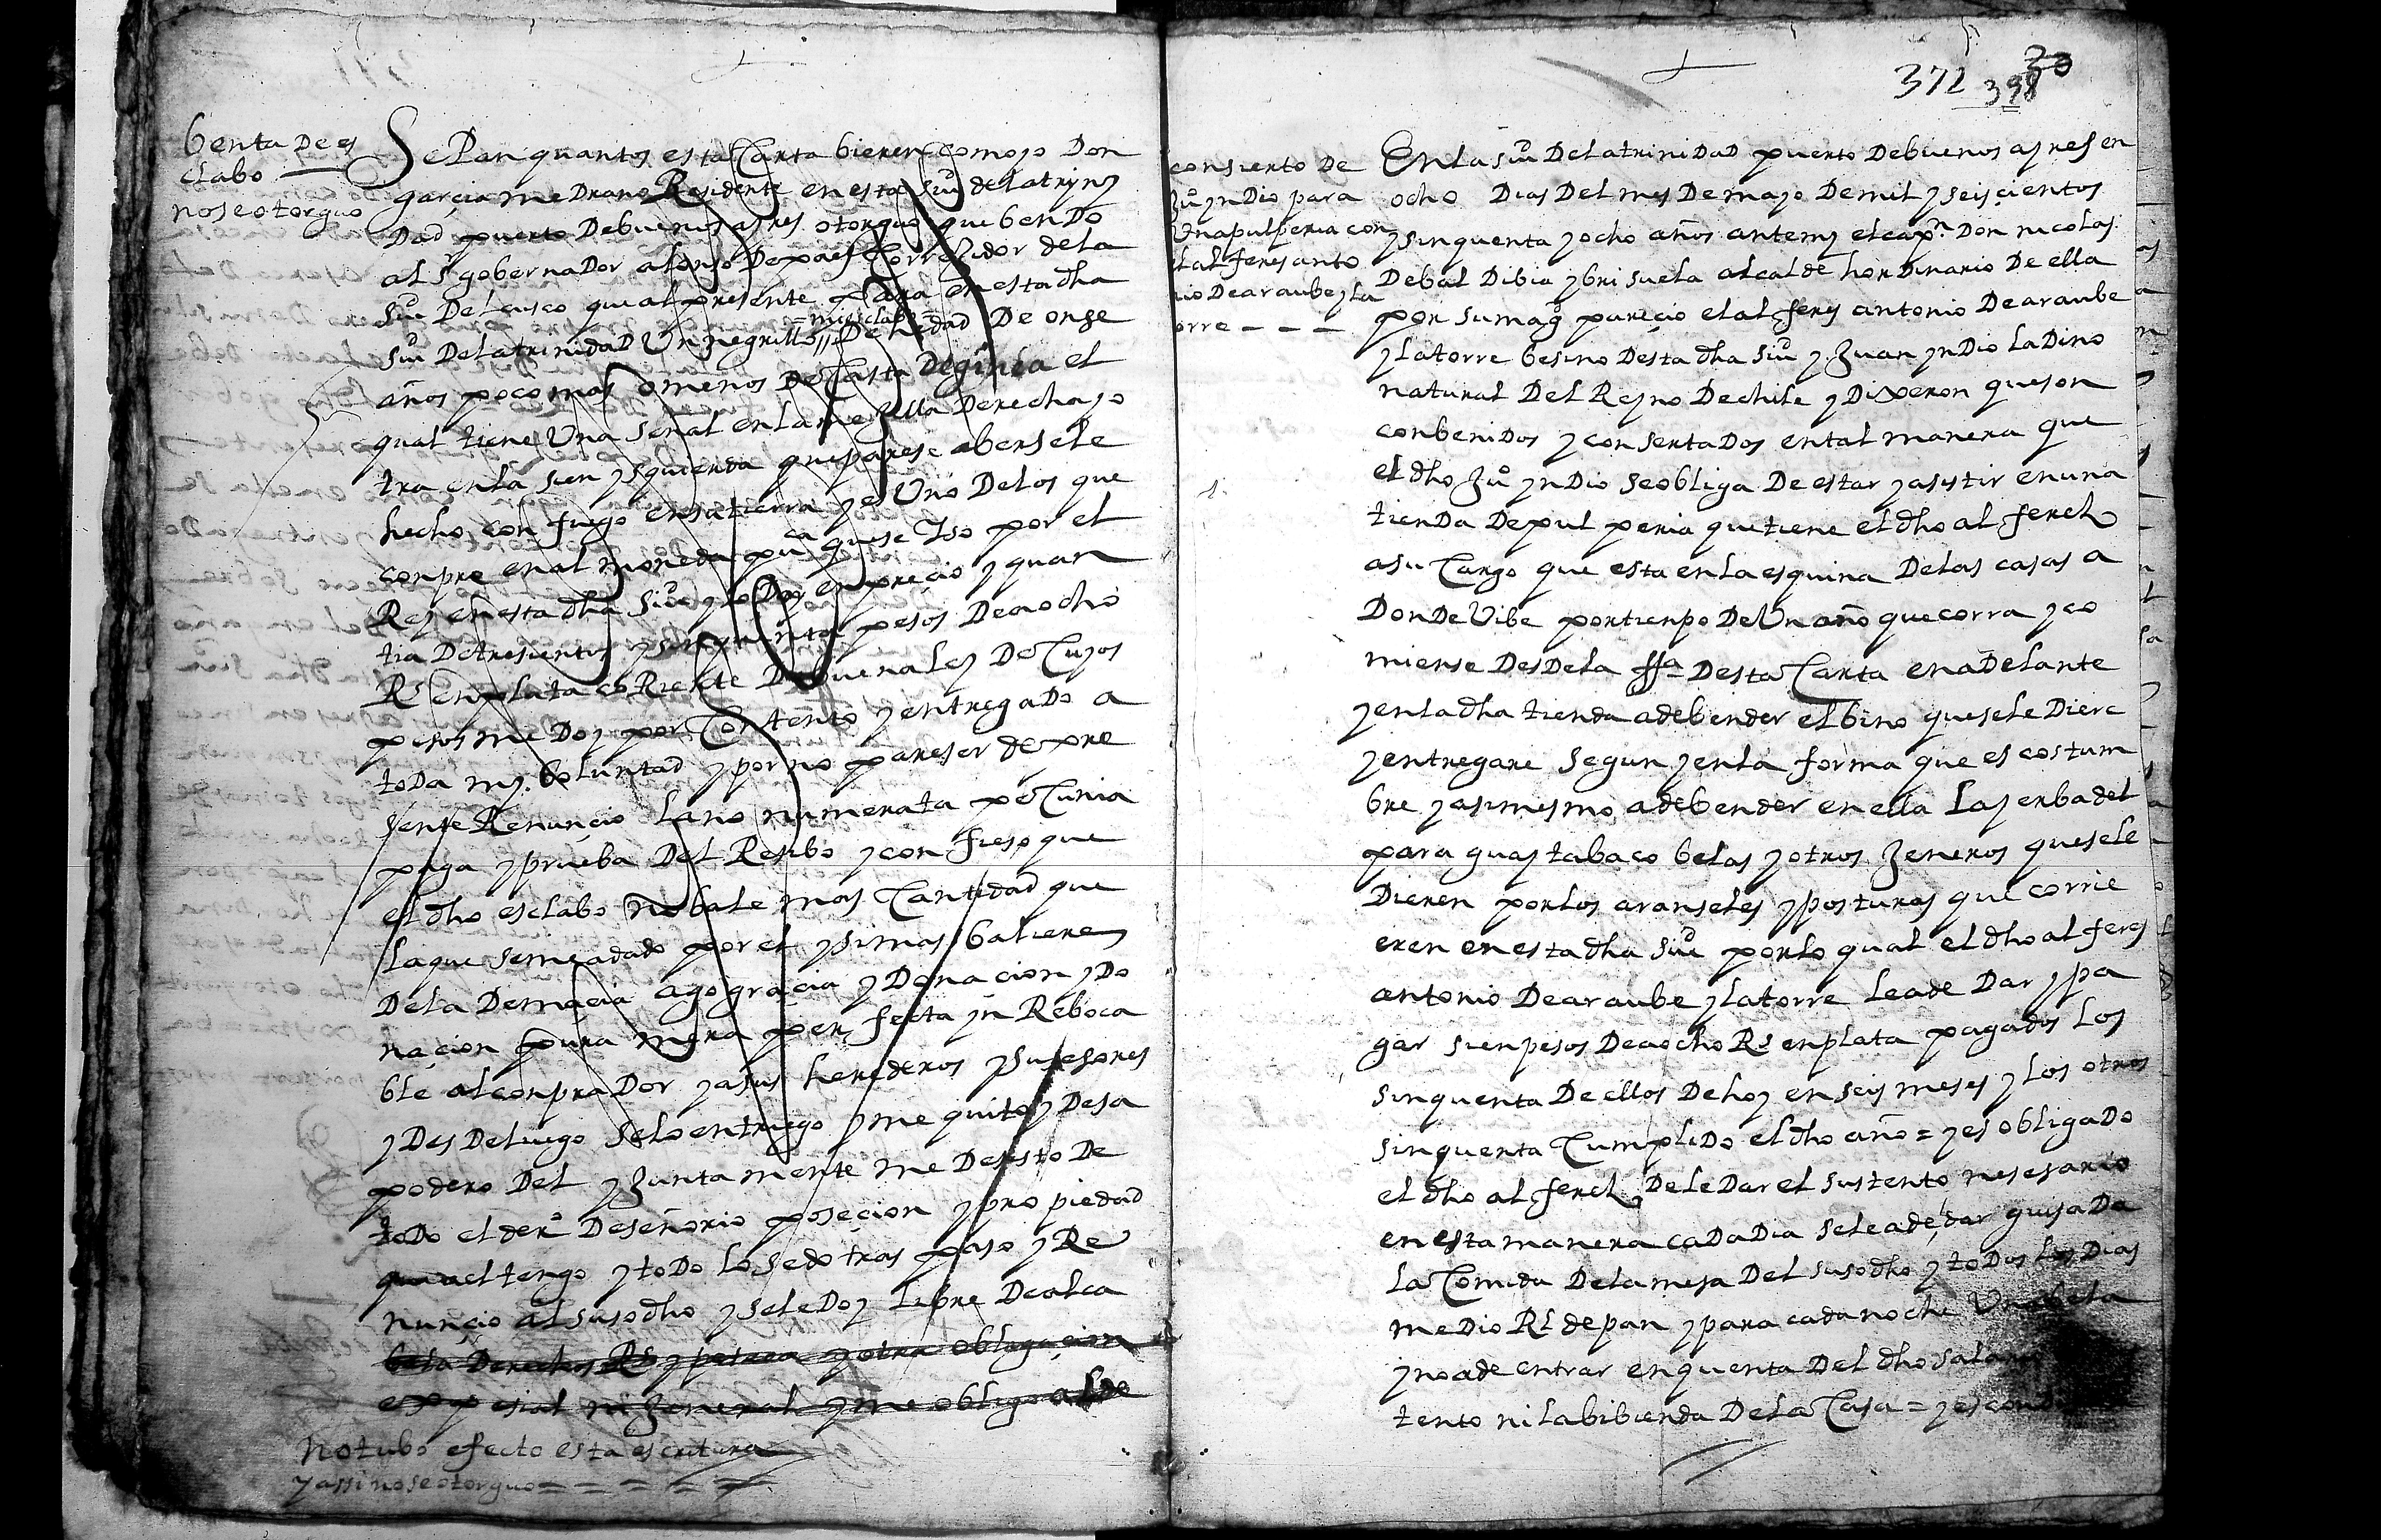 benta de es
clabo
no se otorguo
Sepan quantos esta Carta bieren como yo Don
garçia me Drano Residente en esta siud de la trinj
Dad puerto De buenos ayres otorguo que bendo
al sr gobernaDor alonso De paes Corregidor de la
siud Del cusco que al presente para en esta dha
siud De la trinidad Un negrillo =mi esclabo= De hedad De onse
años poco mas o menos De Casta De ginea el
qual tiene Una señal en la mexilla Derecha y o
tra en la sien ysquierda que parese aberse le
hecho con fuego en su tierra y es Uno De los que
conpre en al moneda puca que se yso por el
Rey en esta dha siud y lo Doy en preçio y quan
tia De tresientos y sinquenta pesos De a ocho
Rs en plata coRiente De buena ley De Cuyos
pesos me Doy por Contento y entregado a
toDa mj boluntad y por no pareser de pre
sente Renunçio la no numerata peCunia
paga y prueba Del Resibo y confieso que
el dho esclabo no bale mas Cantidad que
la que se me a dado por el y si mas baliere
De la Demaçia ago graçia y Donaçion y Do
naçion pura mera perfecta yn Reboca
ble al conpraDor y a sus herederos y susesores
y Des De luego se lo entriego y me quito y Desa
podero Del y Junta mente me Desisto De
toDo el dero De señorio poseçion y pro piedad
que a el tengo y toDo lo sedo tras paso y Re
nunçio al susodho y se le Doy libre De alca
bala Derechos Rs y poteca y otra obligaçion
espesial ni Jeneral y me obligo al de
No tubo efecto esta escritura
y assi no se otorguo = = = = =
372 398 30
consierto De
Juo ynDio para
Una pulperia con
el alferes anto
nio De araube y la
torre - - -
En la siud De la triniDaD puerto De buenos ayres en
ocho Dias Del mes De mayo De mil y seis çientos
y sinquenta y ocho años ante mj el capn Don nicolas
De bal Dibia y bri suela alcalde hordinario De ella
por su magd pareçio el al feres antonio De araube
y la torre besino Desta dha siud y Juan ynDio laDino
natural Del Reyno De chile y Dixeron que son
conbeniDos y con sertaDos en tal manera que
el dho Juo ynDio se obliga De estar y asistir en una
tienDa De pul peria que tiene el dho al feres
a su Cargo que esta en la esquina De las casas a
DonDe Vibe por tienpo De Un año que corra y co
miense DesDe la ffa Desta Carta en aDelante
y en la dha tienda a de bender el bino que se le Diere
y entregare segun y en la forma que es costum
bre y asimesmo a de bender en ella la yerba del
para guay tabaco belas y otros Jeneros que se le
Dieren por los aranseles y posturas que corrie
eren en esta dha siud por lo qual el dho al feres
antonio De araube y la torre le a de Dar y pa
gar sien pesos De a ocho Rs en plata pagados los
sinquenta De ellos De hoy en seis meses y los otros
sinquenta CumpliDo el dho año = y es obligaDo
el dho al feres De le Dar el sustento nesesario
en esta manera caDa Dia se le a de dar guisaDa
la Comida De la mesa Del susodho y toDos los Dias
meDio Rl de pan y para cada noche Una bela
y no a de entrar en quenta Del dho
tento ni la bibienda De la Casa = y es